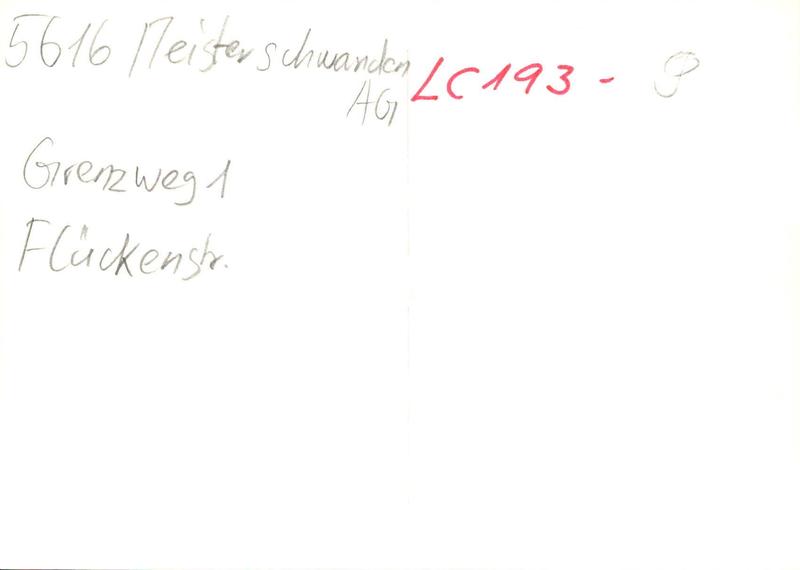 5616 Meisterschwanden
AG
LC 193 - P
Grenzweg 1
Flückenstr.